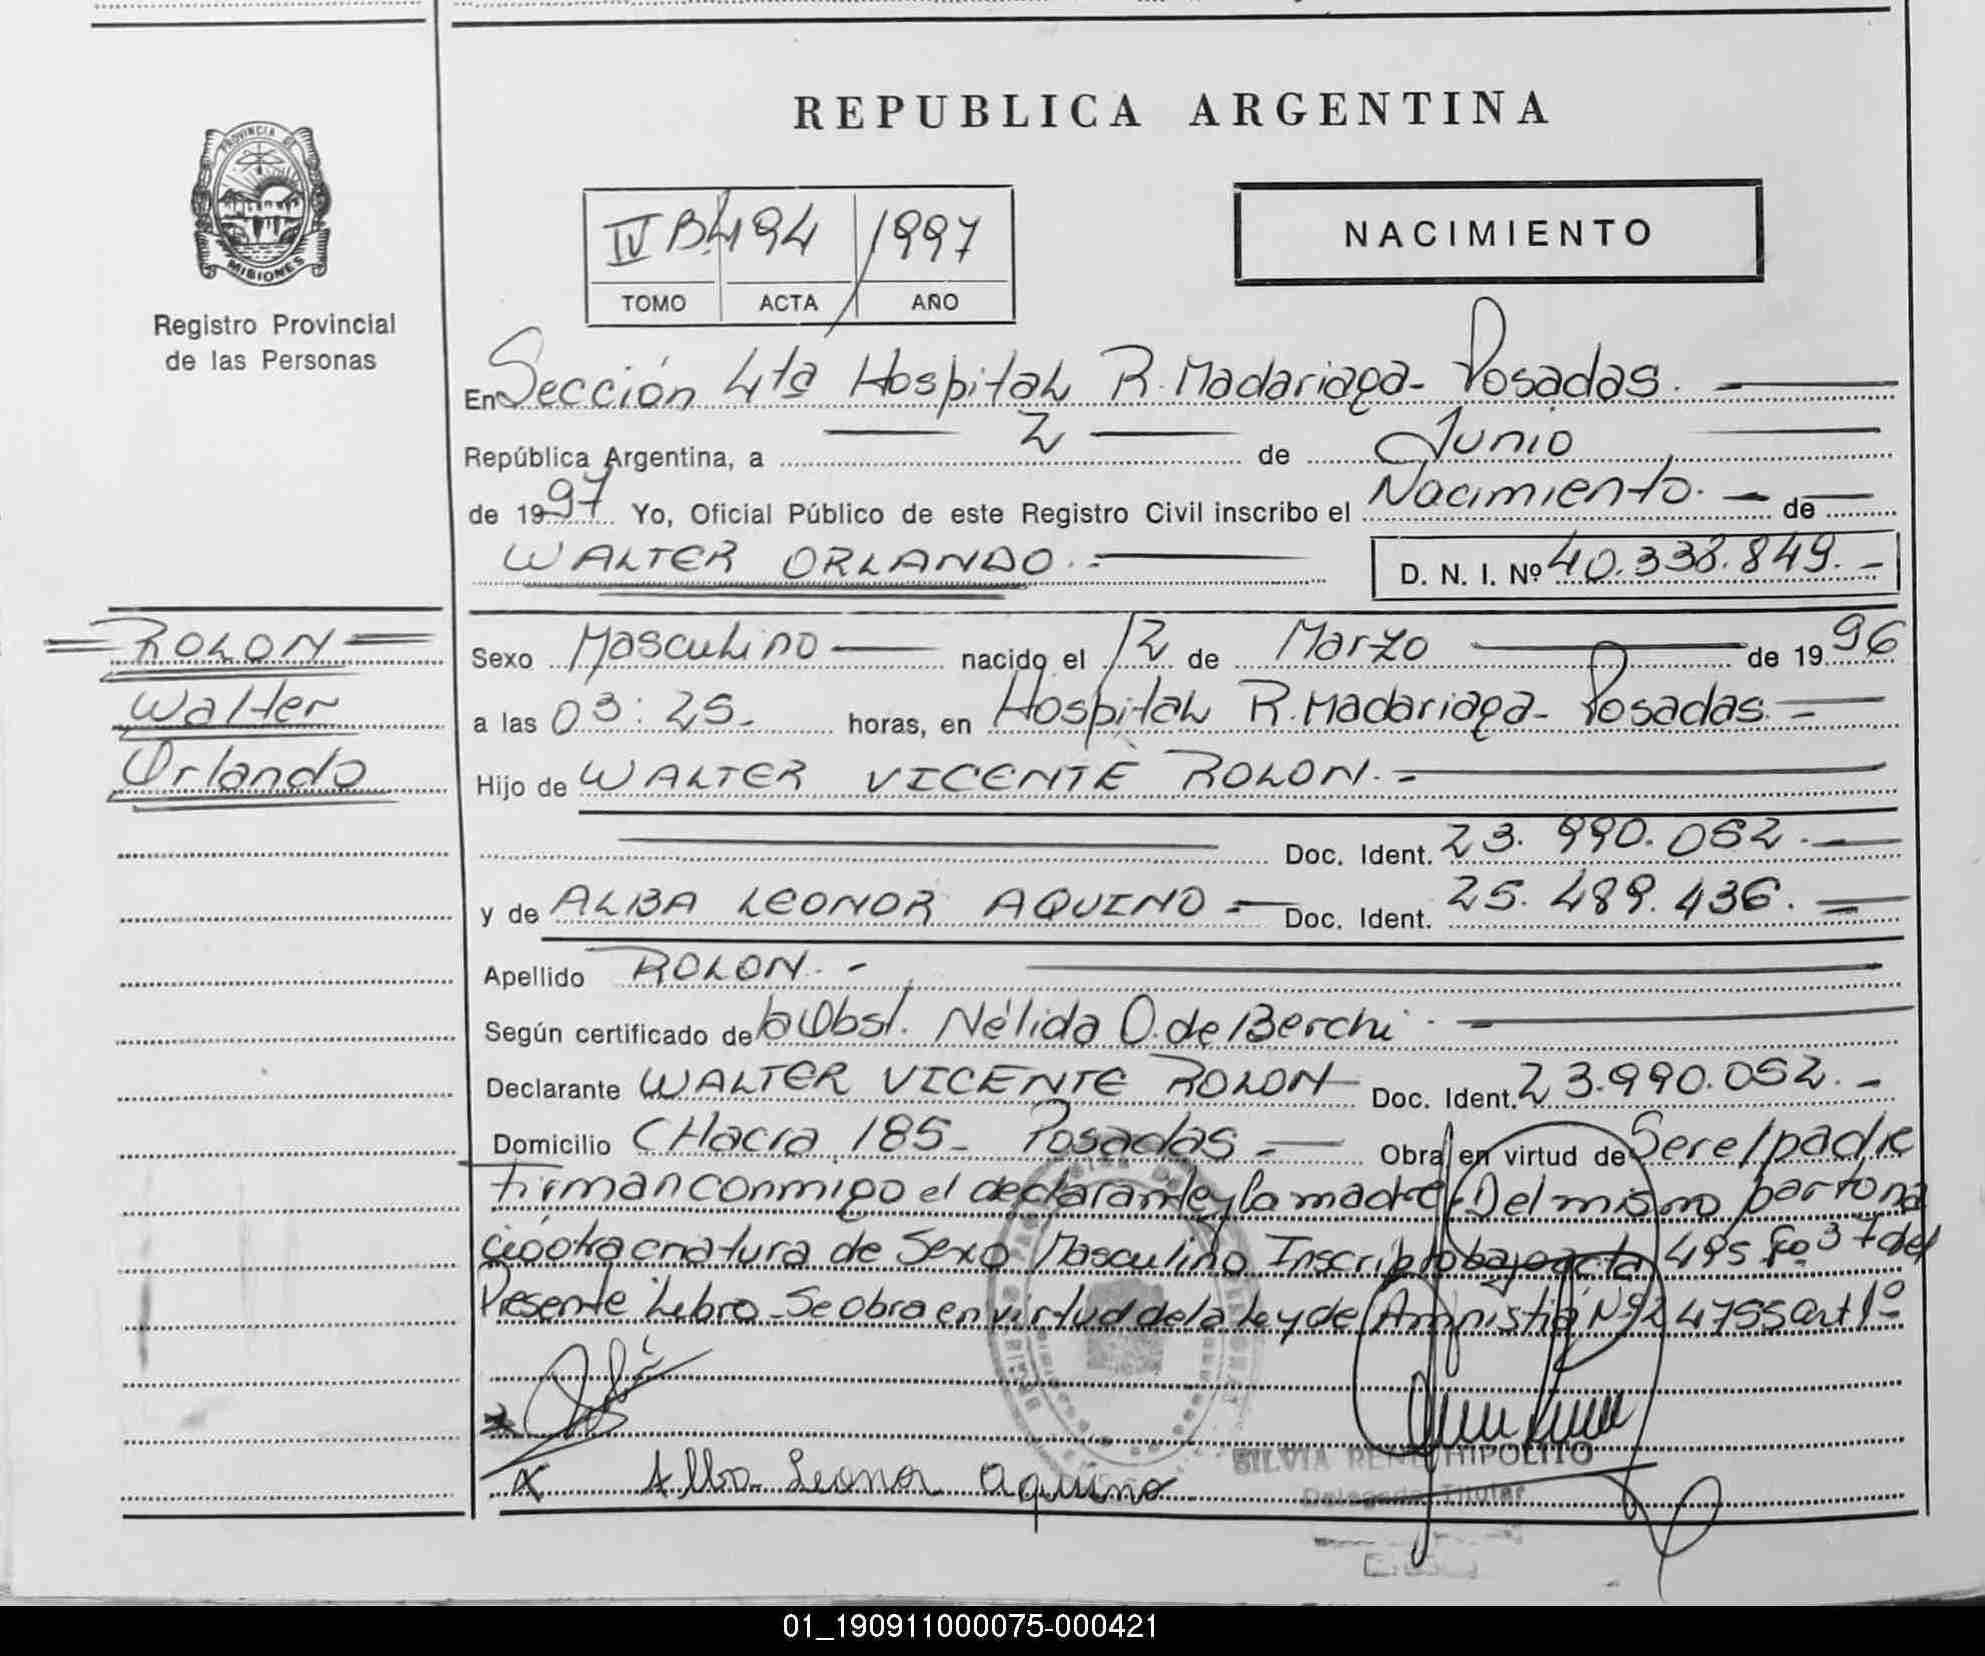 REPUBLICA ARGENTINA
PROVINCIA DE
MISIONES
Registro Provincial
de las Personas
IV B. 494 1997
TOMO ACTA AÑO
NACIMIENTO
En Sección 4ta Hospital R. Madariaga- Posadas.
República Argentina, a 2 de Junio
de 1997 Yo, Oficial Público de este Registro Civil inscribo el Nacimiento. de
WALTER ORLANDO. D. N. I. Nº 40.338.849.-
ROLON
Walter
Orlando
Sexo Masculino nacido el 12 de Marzo de 1996
a las 03:25. horas, en Hospital R. Madariaga- Posadas.
Hijo de WALTER VICENTE ROLON.-
Doc. Ident. 23. 990. 052.
y de ALBA LEONOR AQUINO Doc. Ident. 25. 489. 436.
Apellido ROLON.-
Según certificado de la Obst. Nélida O. de Berchi
Declarante WALTER VICENTE ROLON Doc. Ident. 23.990.052.-
Domicilio CHacra 185- Posadas Obra en virtud de Ser el padre
firman conmigo el declarante y la madre. Del mismo parto na
ció otra criatura de Sexo Masculino Inscripto bajo acta 495 Fo 37 del
Presente Libro. Se obra en virtud de la Ley de Amnistia Nº 24755 art 1º
x Alba Leonor Aquino
SILVIA RENE HIPOLITO
Delegada Titular
01_190911000075-000421